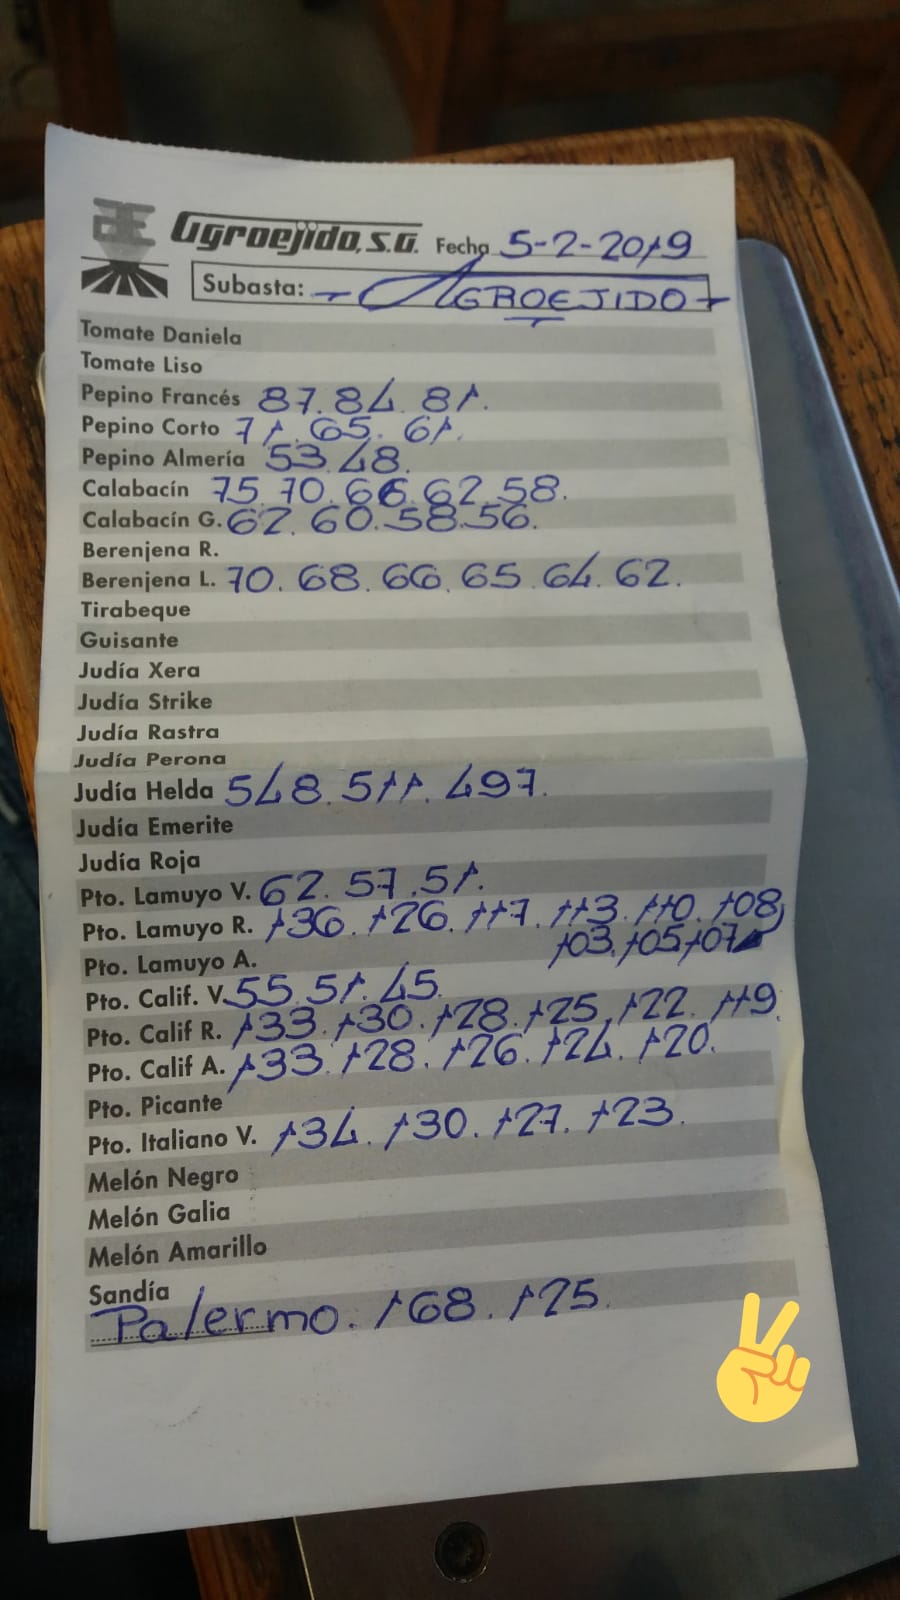 Agroejido, S.A. Fecha 5-2-2019
Subasta: - AGROEJIDO -
Tomate Daniela
Tomate Liso
Pepino Francés 87. 84. 81.
Pepino Corto 71. 65. 61.
Pepino Almería 53. 48.
Calabacín 75 70. 66. 62. 58.
Calabacín G. 62. 60. 58. 56.
Berenjena R.
Berenjena L. 70. 68. 66. 65. 64. 62.
Tirabeque
Guisante
Judía Xera
Judía Strike
Judía Rastra
Judía Perona
Judía Helda 548. 511. 497.
Judía Emerite
Judía Roja
Pto. Lamuyo V. 62. 57. 51.
Pto. Lamuyo R. 136. 126. 117. 113. 110. 108
103. 105 107
Pto. Lamuyo A.
Pto. Calif. V. 55. 51. 45.
Pto. Calif R. 133. 130. 128. 125. 122. 119.
Pto. Calif A. 133. 128. 126. 124. 120.
Pto. Picante
Pto. Italiano V. 134. 130. 127. 123.
Melón Negro
Melón Galia
Melón Amarillo
Sandía
Palermo. 168. 125.